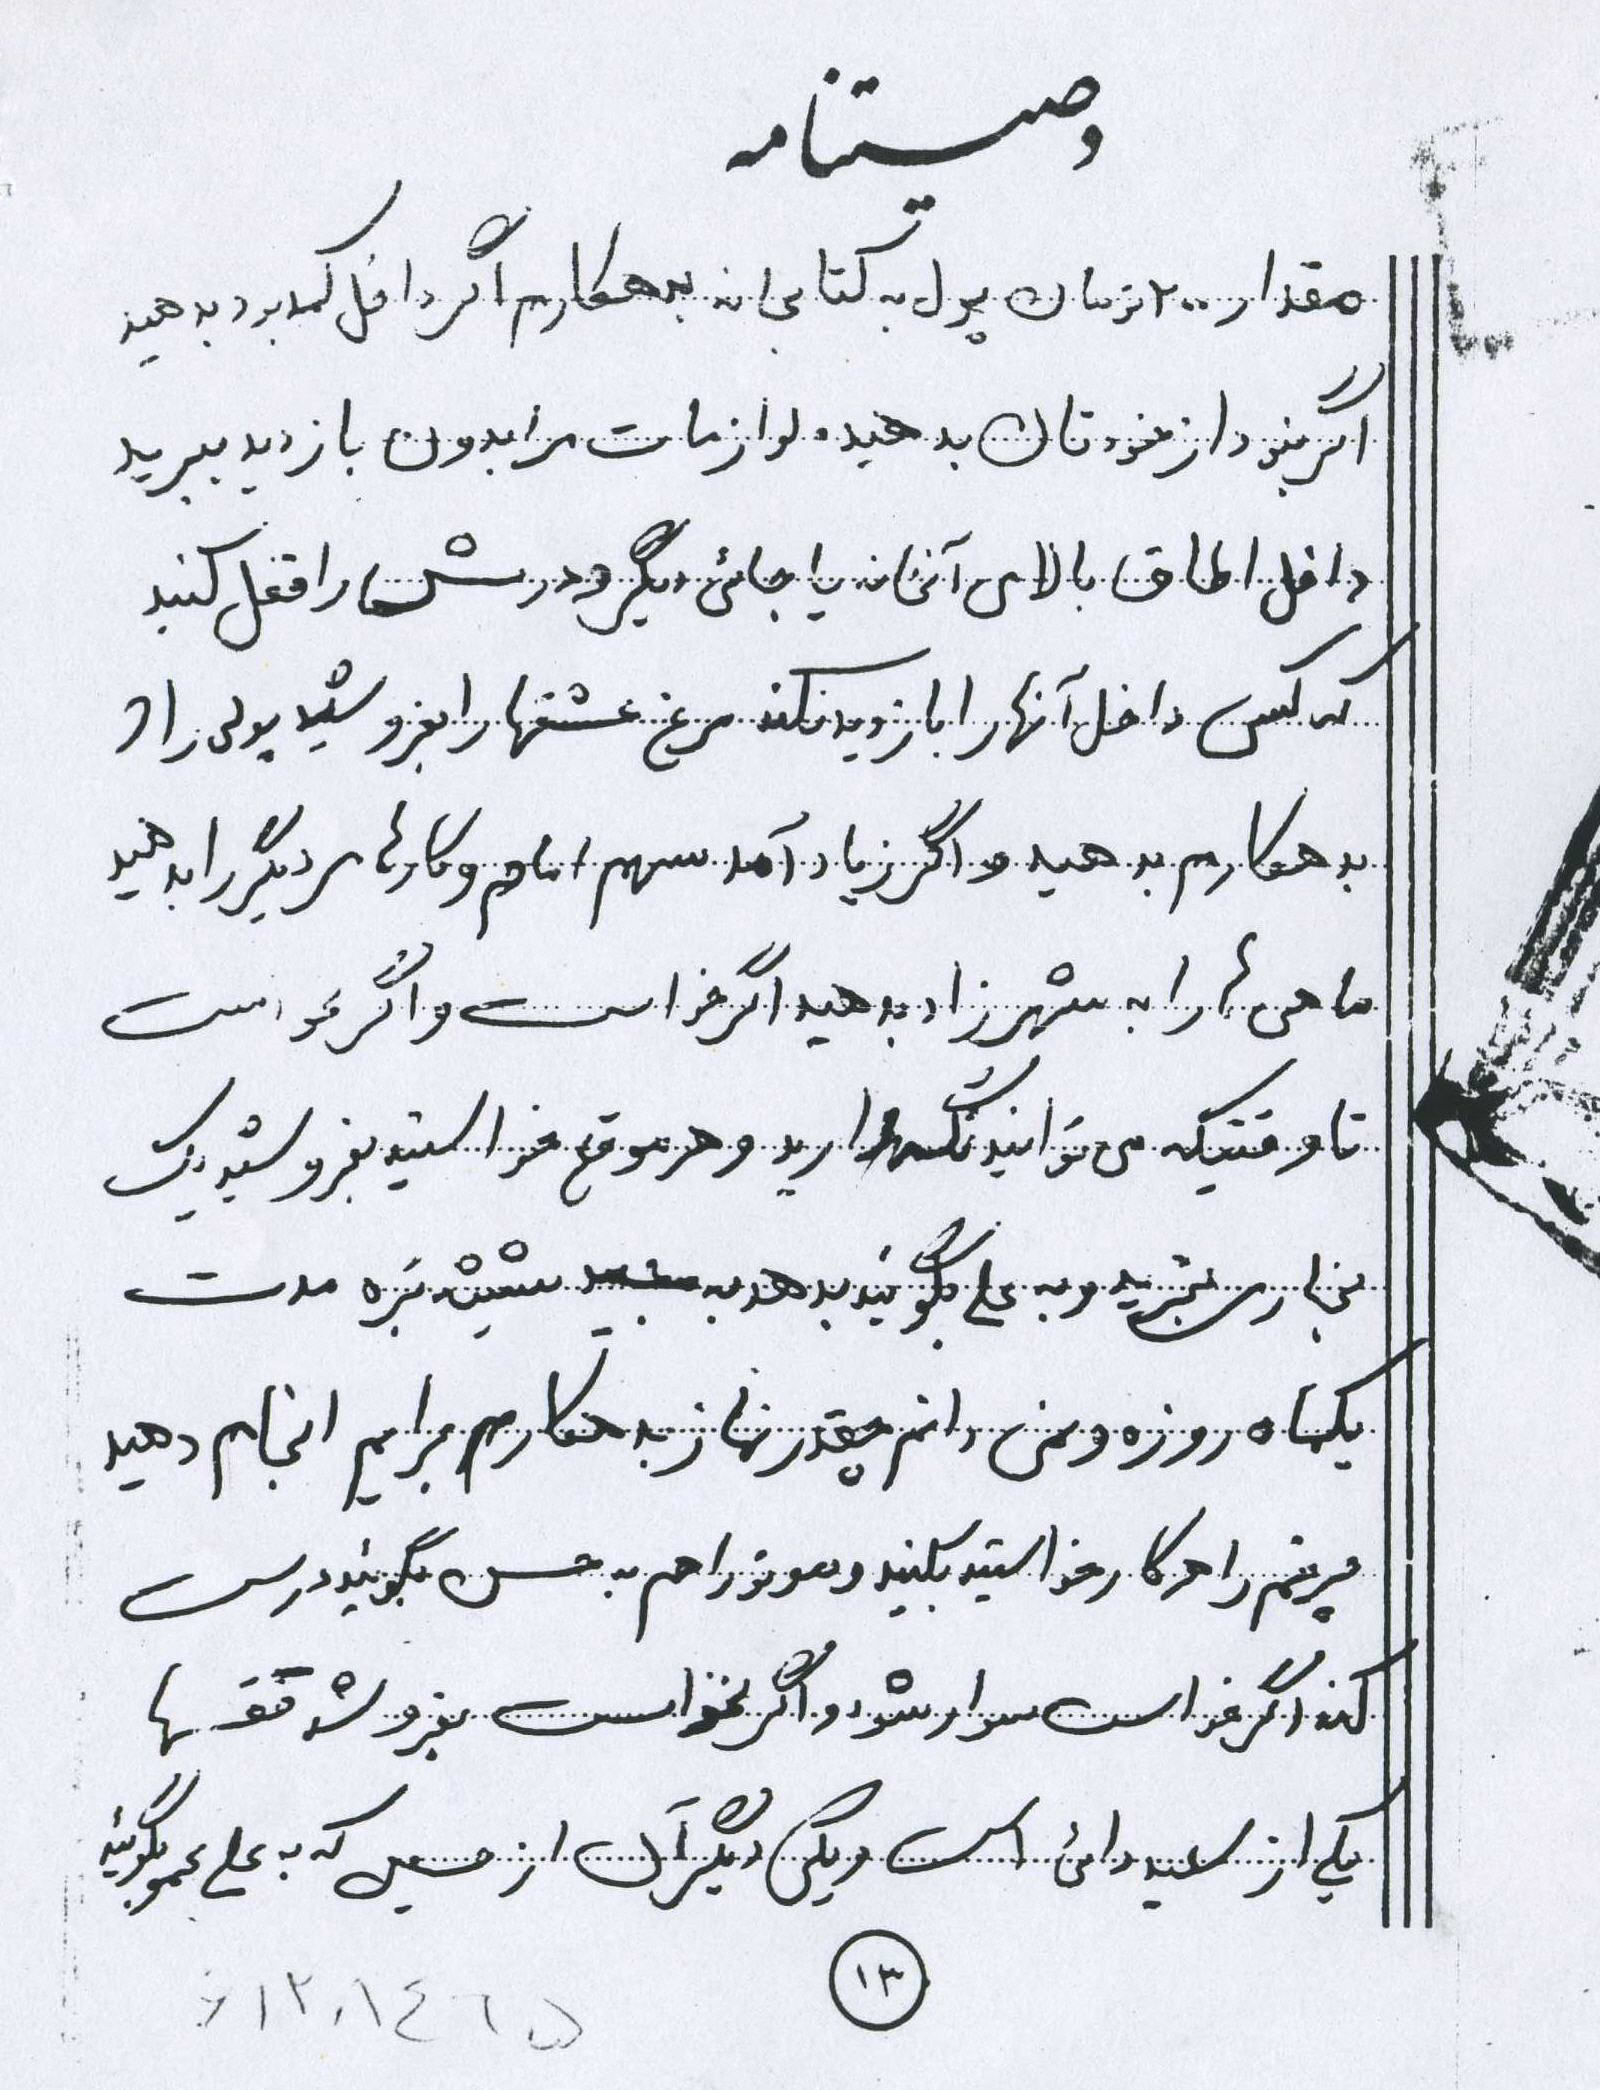 وصیتنامه
مقدار ۲۰۰ تومان پول به کتابخانه بدهکارم اگر داخل کمد بود بدهید
اگر نبود از خودتان بدهید. لوازمات مرا بدون بازدید ببرید
داخل اطاق بالای آشپزخانه یا جائی دیگر و درش را قفل کنید
که کسی داخل آنها را بازدید نکند مرغ عشقها را بفروشید پولی را که
بدهکارم بدهید و اگر زیاد آمد سهم امام و کارهای دیگر را بدهید
ماهی ها را به شهرزاد بدهید اگر خواست و اگر نخواست
تا وقتیکه می توانید نگهدارید و هر موقع خواستید بفروشید یک
بخاری بخرید و به علی بگوئید بدهد به شیشه بُره مدت
یکماه روزه و نمی دانم چقدر نماز بدهکارم برایم انجام دهید
را هر کار خواستید بکنید و موتور را هم به حسن بگوئید درست
کند اگر خواست سوار شود و اگر نخواست بفروشد قفسها
یکی از سعید دائی است و یکی دیگر آن از حسین که به علی عمو بگوئید
۱۳